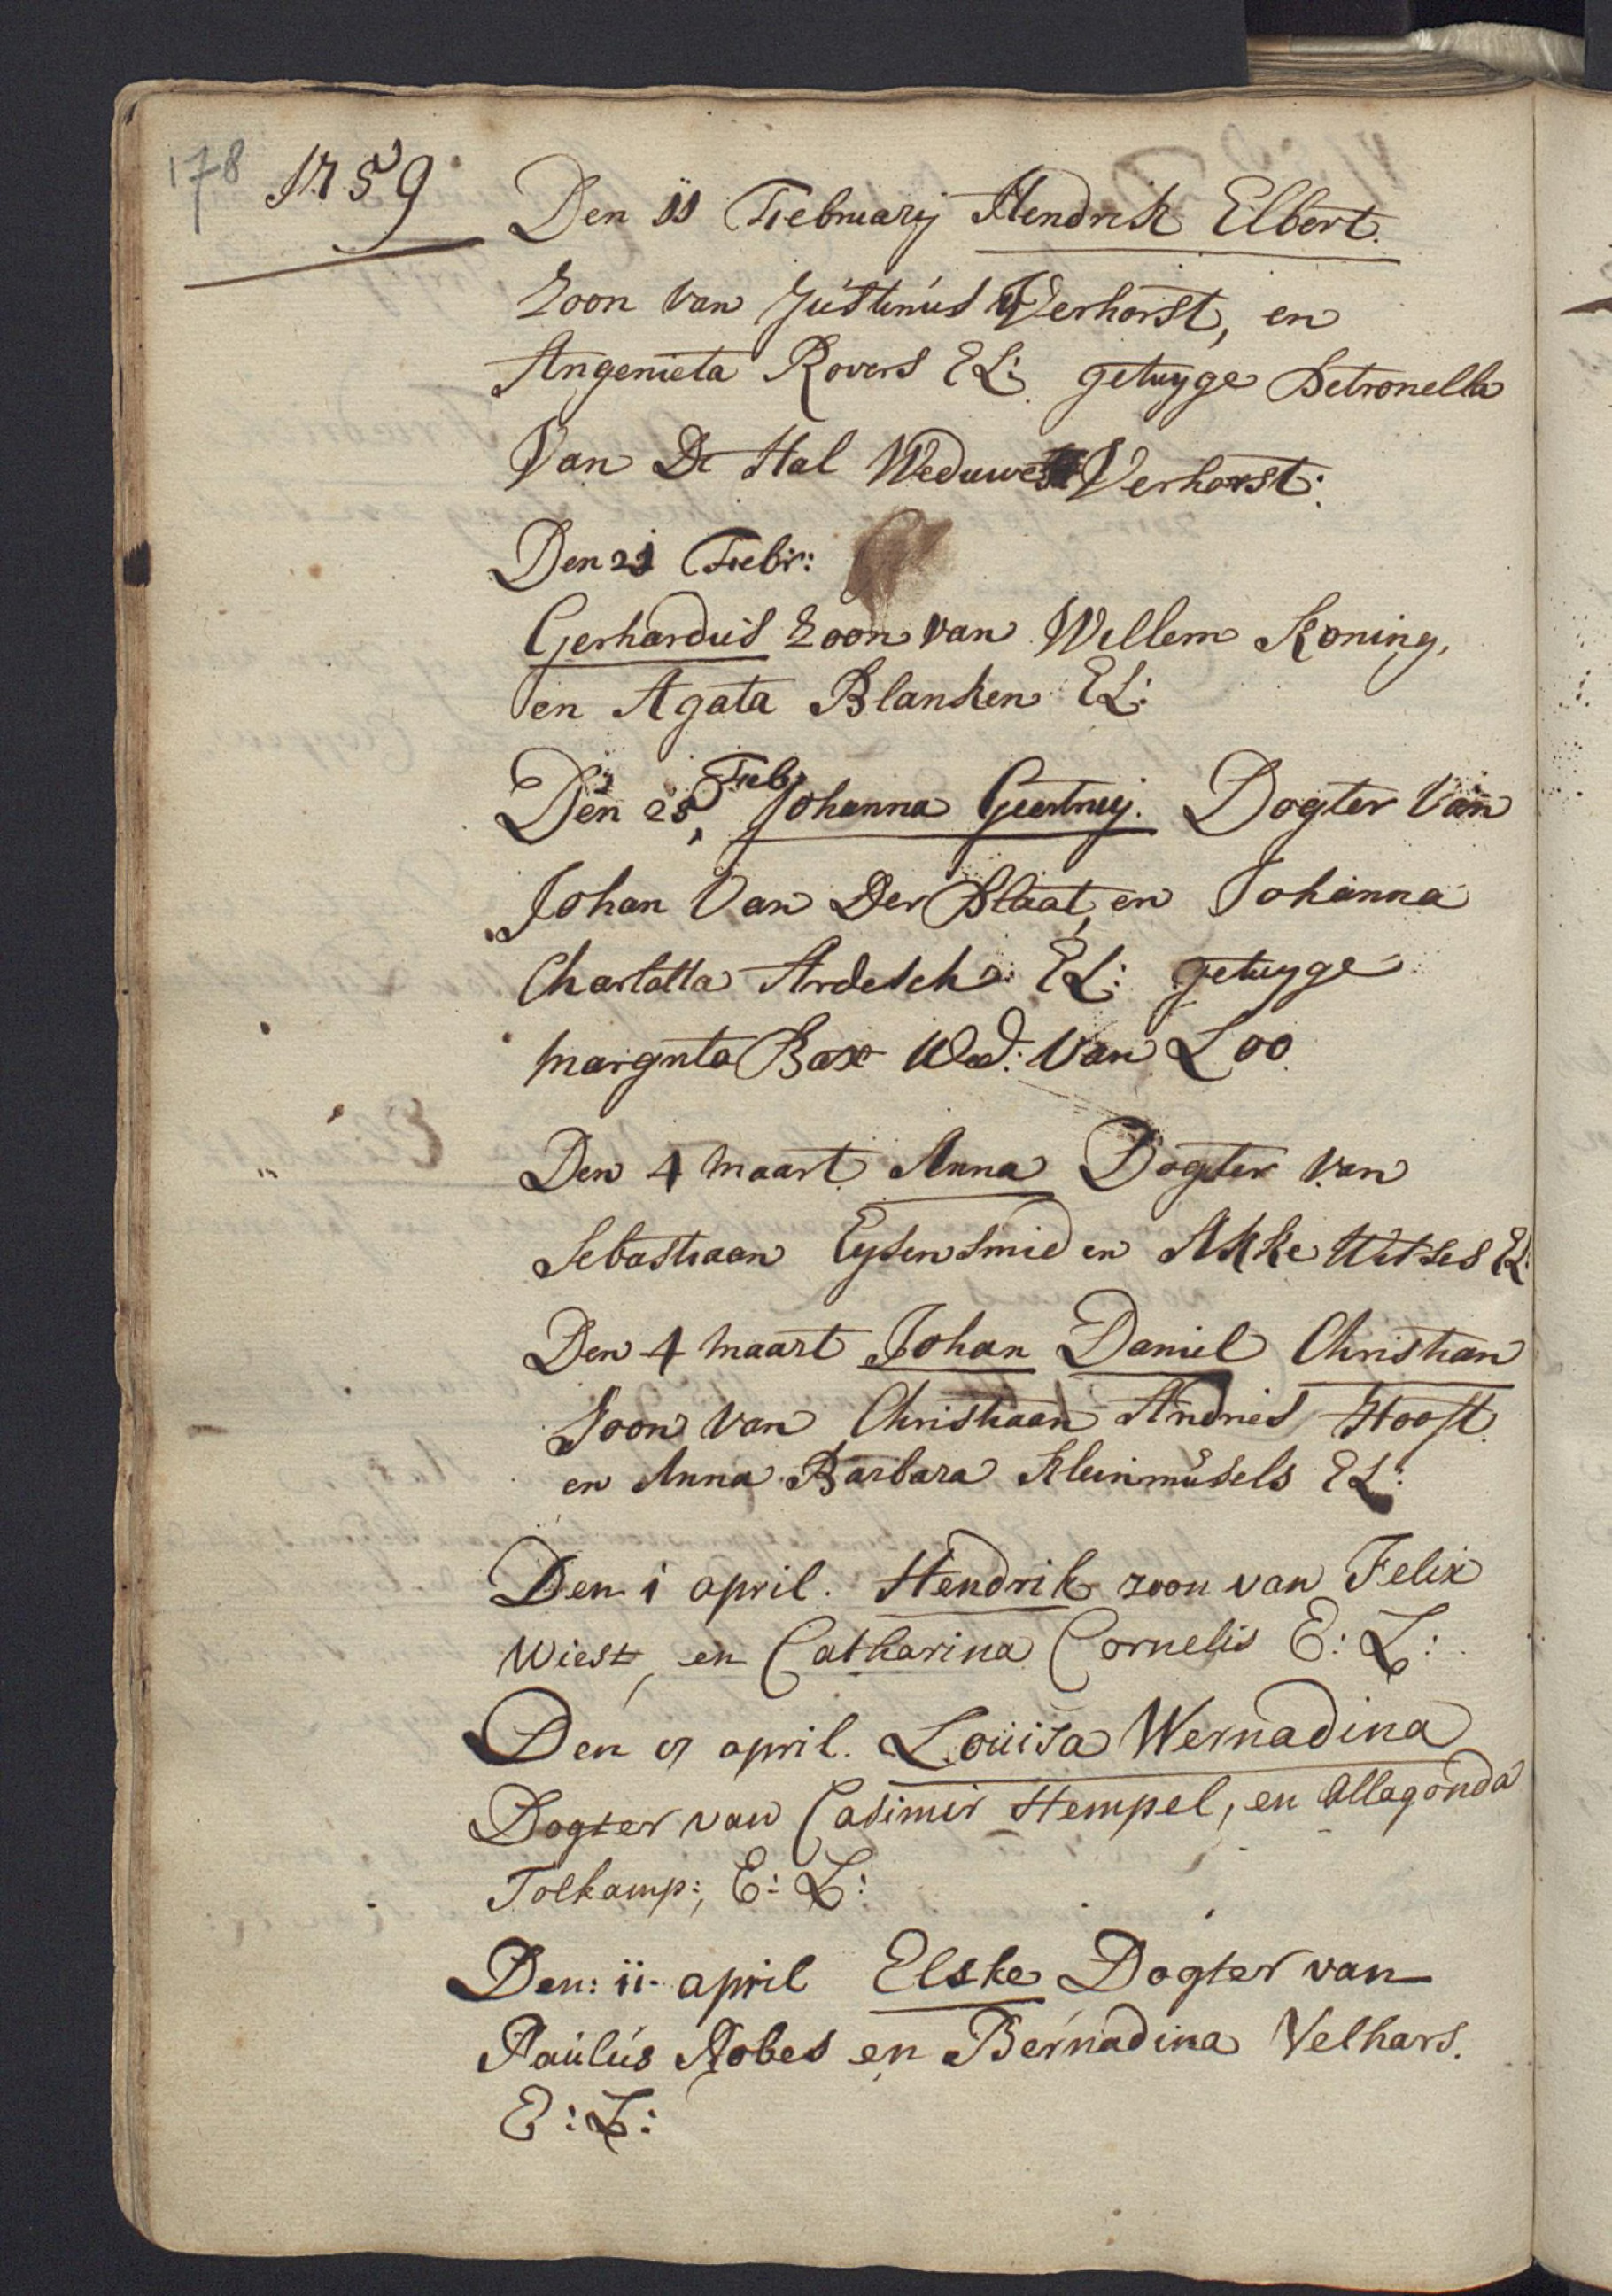 178
1759
Den 11 Februarij Hendrik Elbert.
Zoon van Justinus Verhorst, en
Angenieta Rovers EL: getuyge Petronella
Van De Hal Weduwe Verhorst:
Den 21 Febr:
Gerhardus Zoon van Willem Koning,
en Agata Blanken EL:
Den 25 Feb: Johanna Geertruij. Dogter Van
Johan Van Der Plaat, en Johanna
Charlotta Ardesch EL: getuyge
margrita Bax Wed: Van Loo
Den 4 maart Anna Dogter van
Sebastiaan Eysensmid en Akke Witses EL:
Den 4 maart Johan Daniel Christian
Soon van Christiaan Andries Hooft
en Anna Barbara Kleinmusels EL:
Den 1 april. Hendrik zoon van Felix
Wiest, en Catharina Cornelis E: L:
Den april. Louisa Wernadina
Dogter van Casimir Hempel, en Allagonda
Tolkamp:, E: L:
Den: 11 april Elske Dogter van
Paulus Nobes en Bernadina Velhars.
E: L: